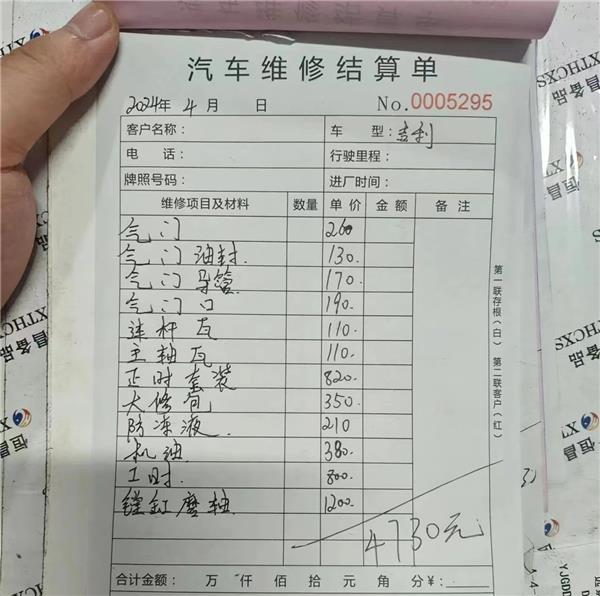 汽车维修结算单
2024年 4月 日 No.0005295
客户名称： 车 型：吉利
电 话： 行驶里程：
牌照号码： 进厂时间：
维修项目及材料 数量 单价 金额 备注
气门 260
气门油封 130.
气门导管 170.
气门口 190.
连杆瓦 110.
主轴瓦 110.
正时套装 820.
大修包 350.
防冻液. 210
机油. 380.
工时. 800.
镗缸磨轴. 1200.
4730元
合计金额： 万 仟 佰 拾 元 角 分￥：
第一联存根(白) 第二联客户(红)
恒昌备品
XTHCXS
恒昌备品
XTHCXS